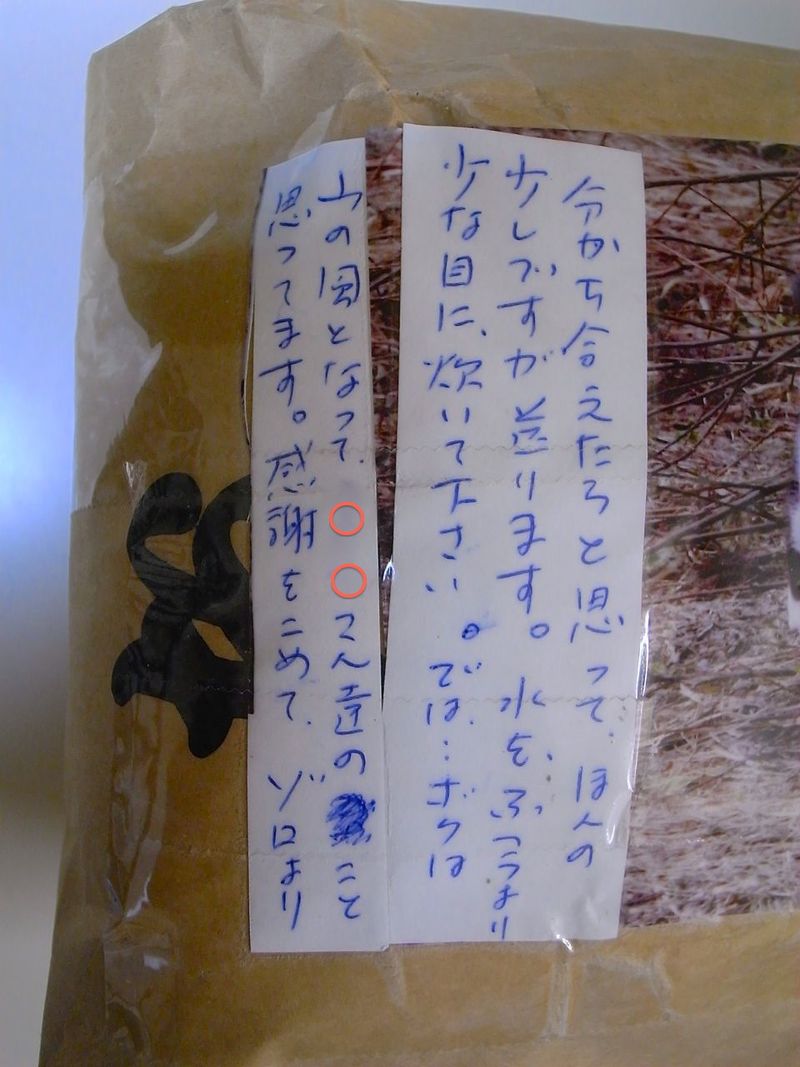 分かち合えたらと思って、ほんの
少しですが送ります。水を、ふつうより
少な目に、炊いて下さい。では…ボクは
山の風となって、○○さん達のこと
思ってます。感謝をこめて、ゾロより